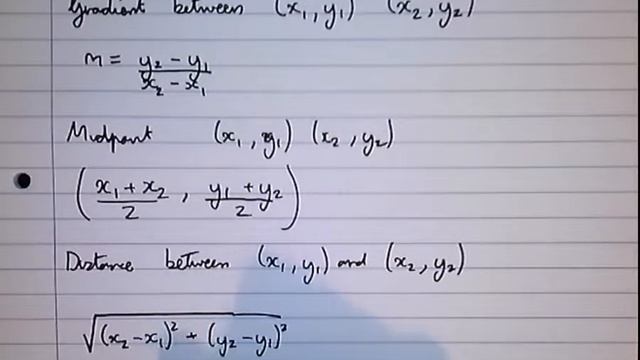 Gradient between (x₁, y₁) (x₂, y₂)
m = (y₂ − y₁)/(x₂ − x₁)
Midpoint (x₁, y₁) (x₂, y₂)
((x₁ + x₂)/2 , (y₁ + y₂)/2)
Distance between (x₁, y₁) and (x₂, y₂)
√((x₂ − x₁)² + (y₂ − y₁)²)